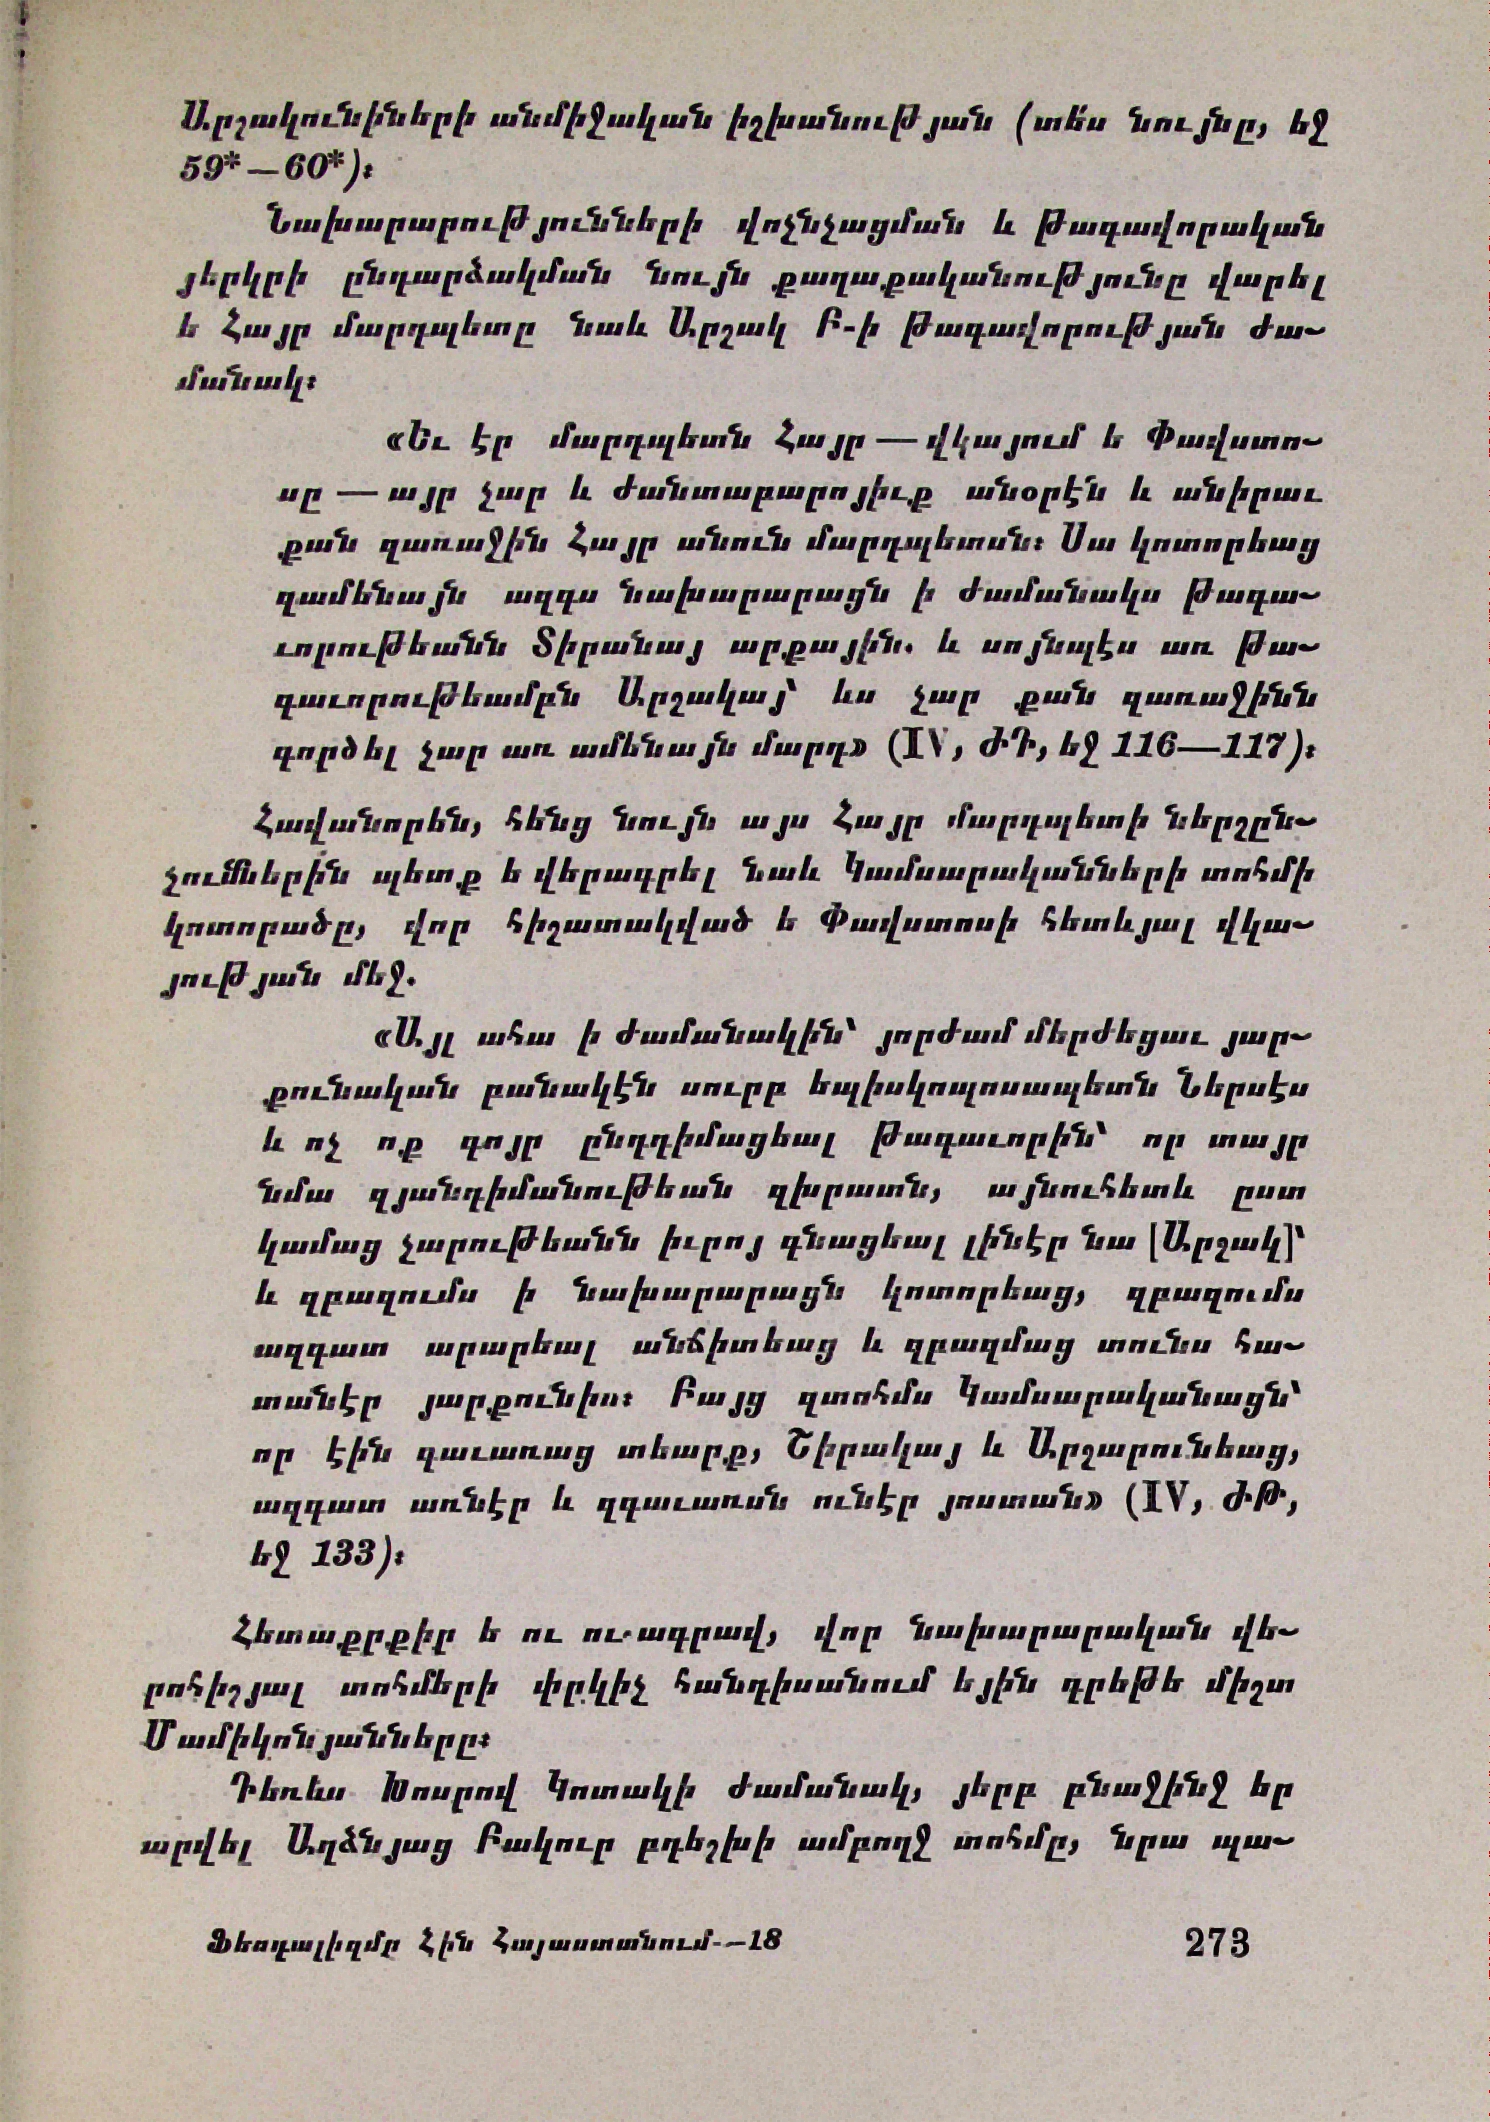 Արշակունիների անմիջական իշխանության (տե՛ս նույնը, եջ
59*—60*)։
Նախարարությունների վոչնչացման և թագավորական
յերկրի ընդարձակման նույն քաղաքականությունը վարել
ե Հայր մարդպետը նաև Արշակ Բ-ի թագավորության ժա-
մանակ։
«Եւ էր մարդպետն Հայր — վկայում ե Փավստո-
սը — այր չար և ժանտաբարոյիւք անօրէն և անիրաւ
քան զառաջին Հայր անուն մարդպետսն։ Սա կոտորեաց
զամենայն ազգս նախարարացն ի ժամանակս թագա-
ւորութեանն Տիրանայ արքային. և սոյնպէս առ թա-
գաւորութեամբն Արշակայ՝ ևս չար քան զառաջինն
գործել չար առ ամենայն մարդ» (IV, ԺԴ, եջ 116—117)։
Հավանորեն, հենց նույն այս Հայր մարդպետի ներշըն-
չումներին պետք ե վերագրել նաև Կամսարականների տոհմի
կոտորածը, վոր հիշատակված ե Փավստոսի հետևյալ վկա-
յության մեջ.
«Այլ ահա ի ժամանակին՝ յորժամ մերժեցաւ յար-
քունական բանակէն սուրբ եպիսկոպոսապետն Ներսէս
և ոչ ոք գոյր ընդդիմացեալ թագաւորին՝ որ տայր
նմա զյանդիմանութեան զխրատն, այնուհետև ըստ
կամաց չարութեանն իւրոյ գնացեալ լինէր նա [Արշակ]՝
և զբազումս ի նախարարացն կոտորեաց, զբազումս
ազգատ արարեալ անճիտեաց և զբազմաց տունս հա-
տանէր յարքունիս։ Բայց զտոհմս Կամսարականացն՝
որ էին գաւառաց տեարք, Շիրակայ և Արշարունեաց,
ազգատ առնէր և զգաւառսն ունէր յոստան» (IV, ԺԹ,
եջ 133)։
Հետաքրքիր ե ու ուշագրավ, վոր նախարարական վե-
րոհիշյալ տոհմերի փրկիչ հանդիսանում եյին գրեթե միշտ
Մամիկոնյանները։
Դեռևս Խոսրով Կոտակի ժամանակ, յերբ բնաջինջ եր
արվել Աղձնյաց Բակուր բդեշխի ամբողջ տոհմը, նրա պա-
Ֆեոդալիզմը Հին Հայաստանում—18
273